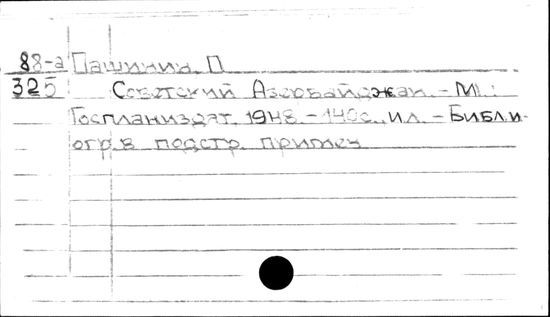 88-а Пашинин, П.
325 Советский Азербайджан. - М.:
Госпланиздат, 1948. - 140с., ил. - Библи-
огр. в подстр. примеч.